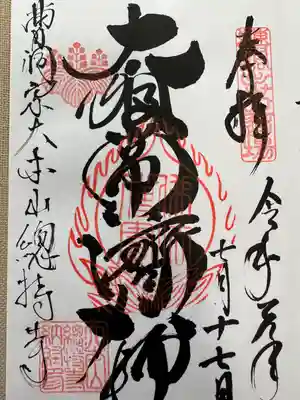 奉拝
令和元年
七月十七日
太祖常濟大師
曹洞宗大本山總持寺